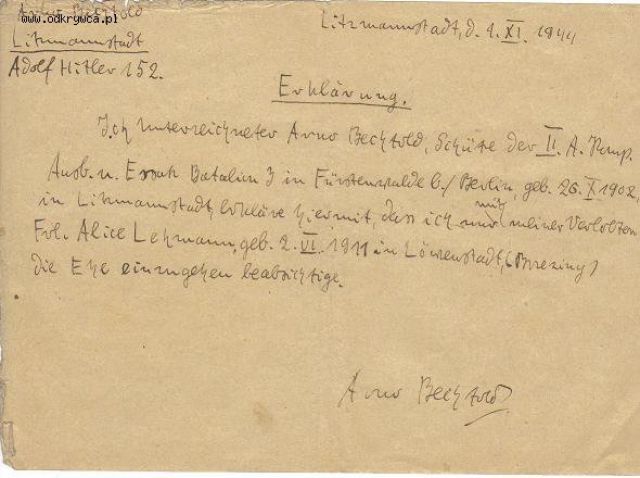 Arno Bechtold
www.odkrywca.pl
Litzmannstadt
Adolf Hitler 152.
Litzmannstadt, d. 1. XI. 1944
Erklärung.
Ich Unterzeichneter Arno Bechtold, Schütze der II. A. Komp.
Ausb. u. Ersatz Batalion 3 in Fürstenwalde b./Berlin, geb. 26. X. 1902,
in Litzmannstadt, erkläre hiermit, dass ich mit meiner Verlobten
Frl. Alice Lehmann, geb. 2. VI. 1911 in Löwenstadt, (Brzeziny)
die Ehe einzugehen beabsichtige.
Arno Bechtold